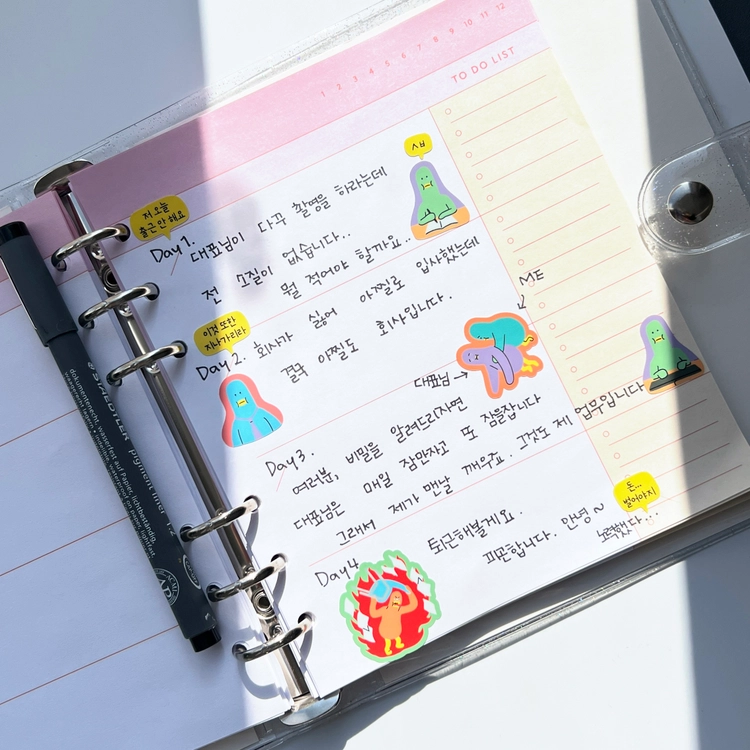 1 2 3 4 5 6 7 8 9 10 11 12
TO DO LIST
ㅅㅂ
저 오늘
출근 안 해요
Day 1. 대표님이 다꾸 촬영을 하라는데
전 소질이 없습니다..
뭘 적어야 할까요..
이것 또한
지나가리라
Day 2. 회사가 싫어 아찔로 입사했는데
결국 아찔도 회사입니다.
ME
대표님 →
Day 3.
여러분, 비밀을 알려드리자면
대표님은 매일 잠만자고 또 잠을잡니다
그래서 제가 맨날 깨우죠. 그것도 제 업무입니다
Day 4
퇴근해볼게요.
피곤합니다. 안녕~
돈...
벌어야지
노력했다...
STAEDTLER pigment liner 1.2
dokumentenecht, wasserfest auf Papier, lichtbeständig,